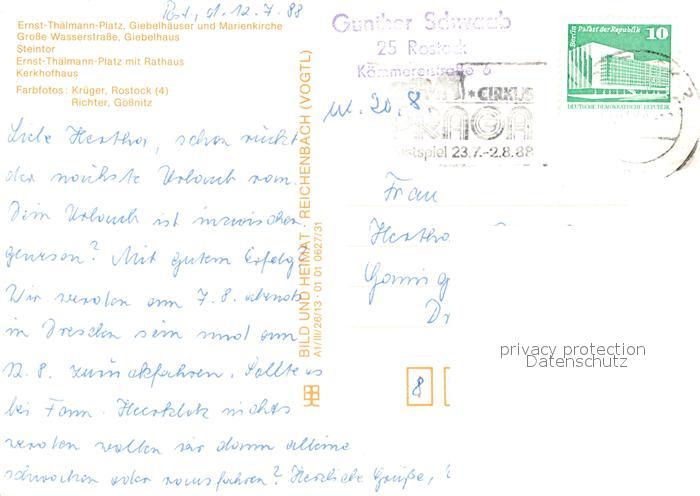 Rost., d. 12.7.88
Ernst-Thälmann-Platz, Giebelhäuser und Marienkirche
Große Wasserstraße, Giebelhaus
Steintor
Ernst-Thälmann-Platz mit Rathaus
Kerkhofhaus
Farbfotos: Krüger, Rostock (4)
Richter, Gößnitz
Liebe Hertha, schon rückt
der nächste Urlaub ran.
Dein Urlaub ist inzwischen
gewesen? Mit gutem Erfolg?
Wir werden am 7.8. abends
in Dresden sein und am
12.8. zurückfahren. Sollte es
bei Fam. nichts
werden wollen wir dann alleine
oder rausfahren? Herzliche Grüße,
BILD UND HEIMAT · REICHENBACH (VOGTL)
A1/III/26/13 · 01 01 0627/31
Gunther Schwaab
25 Rostock
Kämmereistraße 6
CIRKUS
PRAGA
stspiel 23.7.-2.8.88
20.8.
Berlin Palast der Republik
10
DEUTSCHE DEMOKRATISCHE REPUBLIK
Frau
Hertha
8
privacy protection
Datenschutz